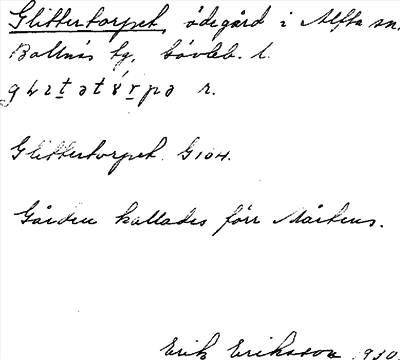 Glittertorpet, ödegård i Alfta sn.
Bollnäs tg, Gävleb. l.
Glittertorpet. G104.
Gården kallades förr Mårtens.
Erik Eriksson 1930.